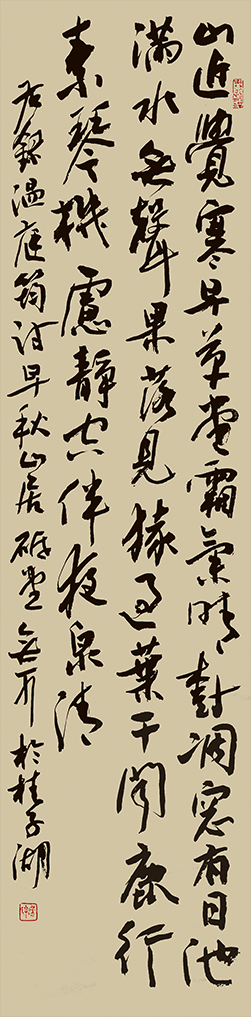 山近覺寒早草堂霜氣晴樹凋窓有日池
滿水無聲果落見猿過葉干聞鹿行
素琴機慮靜空伴夜泉清
右錄温庭筠詩早秋山居砥堂於桂子湖